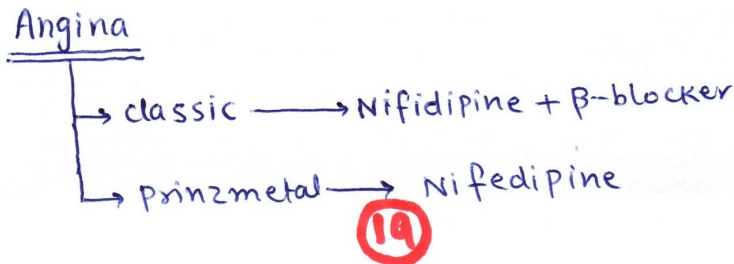 Angina
classic → Nifidipine + β-blocker
prinzmetal → Nifedipine
19